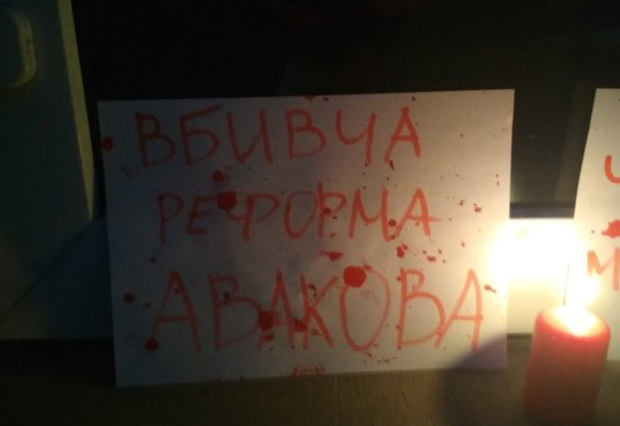 ВБИВЧА
РЕФОРМА
АВАКОВА